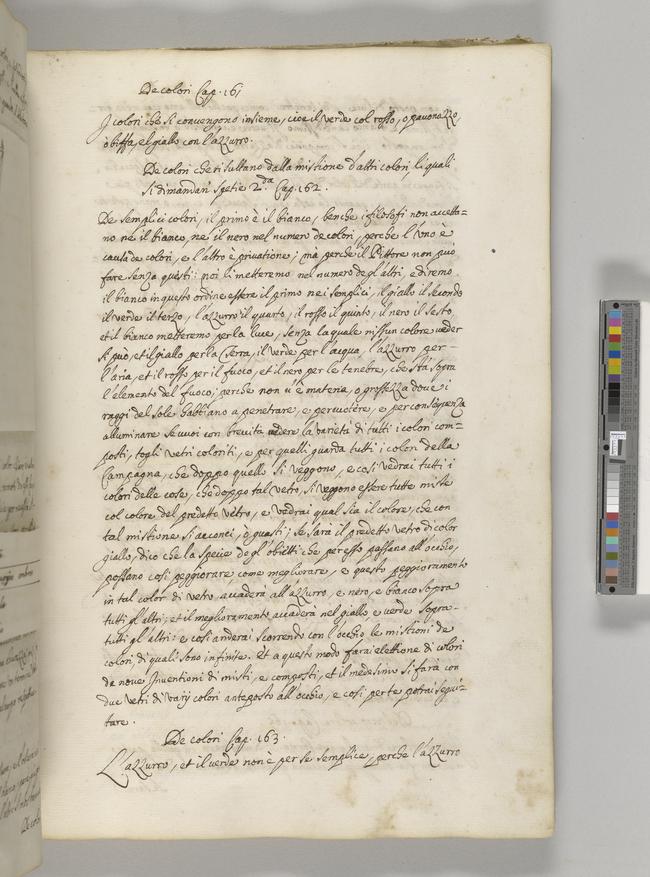 De colori Cap. 161
I colori che si convengono insieme, cioè il verde col rosso, o pavonazzo,
ò biffa, el giallo con l'azzurro.
De colori che risultano dalla mistione d'altri colori li quali
si dimandan spetie 2.da Cap. 162.
De semplici colori, il primo è il bianco, benche i filosofi non accetta=
no ne il bianco, ne il nero nel numero de colori, perche l'uno è
causa de colori, e l'altro è privatione; mà perche il Pittore non può
fare senza questi: noi li metteremo nel numero degl'altri, e diremo
il bianco in questo ordine essere il primo nei semplici, il giallo il secondo
il verde il terzo, l'azzurro il quarto, il rosso il quinto, il nero il sesto,
et il bianco metteremo per la luce, senza la quale nissun colore veder
si può, et il giallo per la terra, il verde per l'acqua, l'azzurro per=
l'aria, et il rosso per il fuoco, et il nero per le tenebre, che stà sopra
l'elemento del fuoco, perche non v'è materia, o grossezza dove i
raggi del sole habbiano a penetrare, e percuotere, e per conseguenza
alluminare se vuoi con brevità vedere la varietà di tutti i colori com=
posti, togli vetri coloriti, e per quelli guarda tutti i colori della
Campagna, che doppo quello si veggono, e così vedrai tutti i
colori delle cose, che doppo tal vetro, si veggono essere tutte miste
col colore del predetto vetro, e vedrai qual sia il colore, che con
tal mistione s'acconci, ò guasti; se sarà il predetto vetro di color
giallo, dico che la specie degl'obietti che per esso passano all'occhio,
possano così peggiorare come megliorare, e questo peggioramento
in tal color di vetro accaderà all'azzurro, e nero, e bianco sopra
tutti gl'altri; et il meglioramento accaderà nel giallo e verde sopra=
tutti gl'altri: e così anderai scorrendo con l'occhio le mistioni de
colori, di quali sono infinite. Et a questo modo farai elettione di colori
da nove Inventioni di misti, e composti, et il medesimo si farà con
due vetri di varij colori anteposto all'occhio, e così per te potrai segui=
tare.
De colori Cap. 163.
L'azzurro, et il verde non è per se semplice, perche l'azzurro